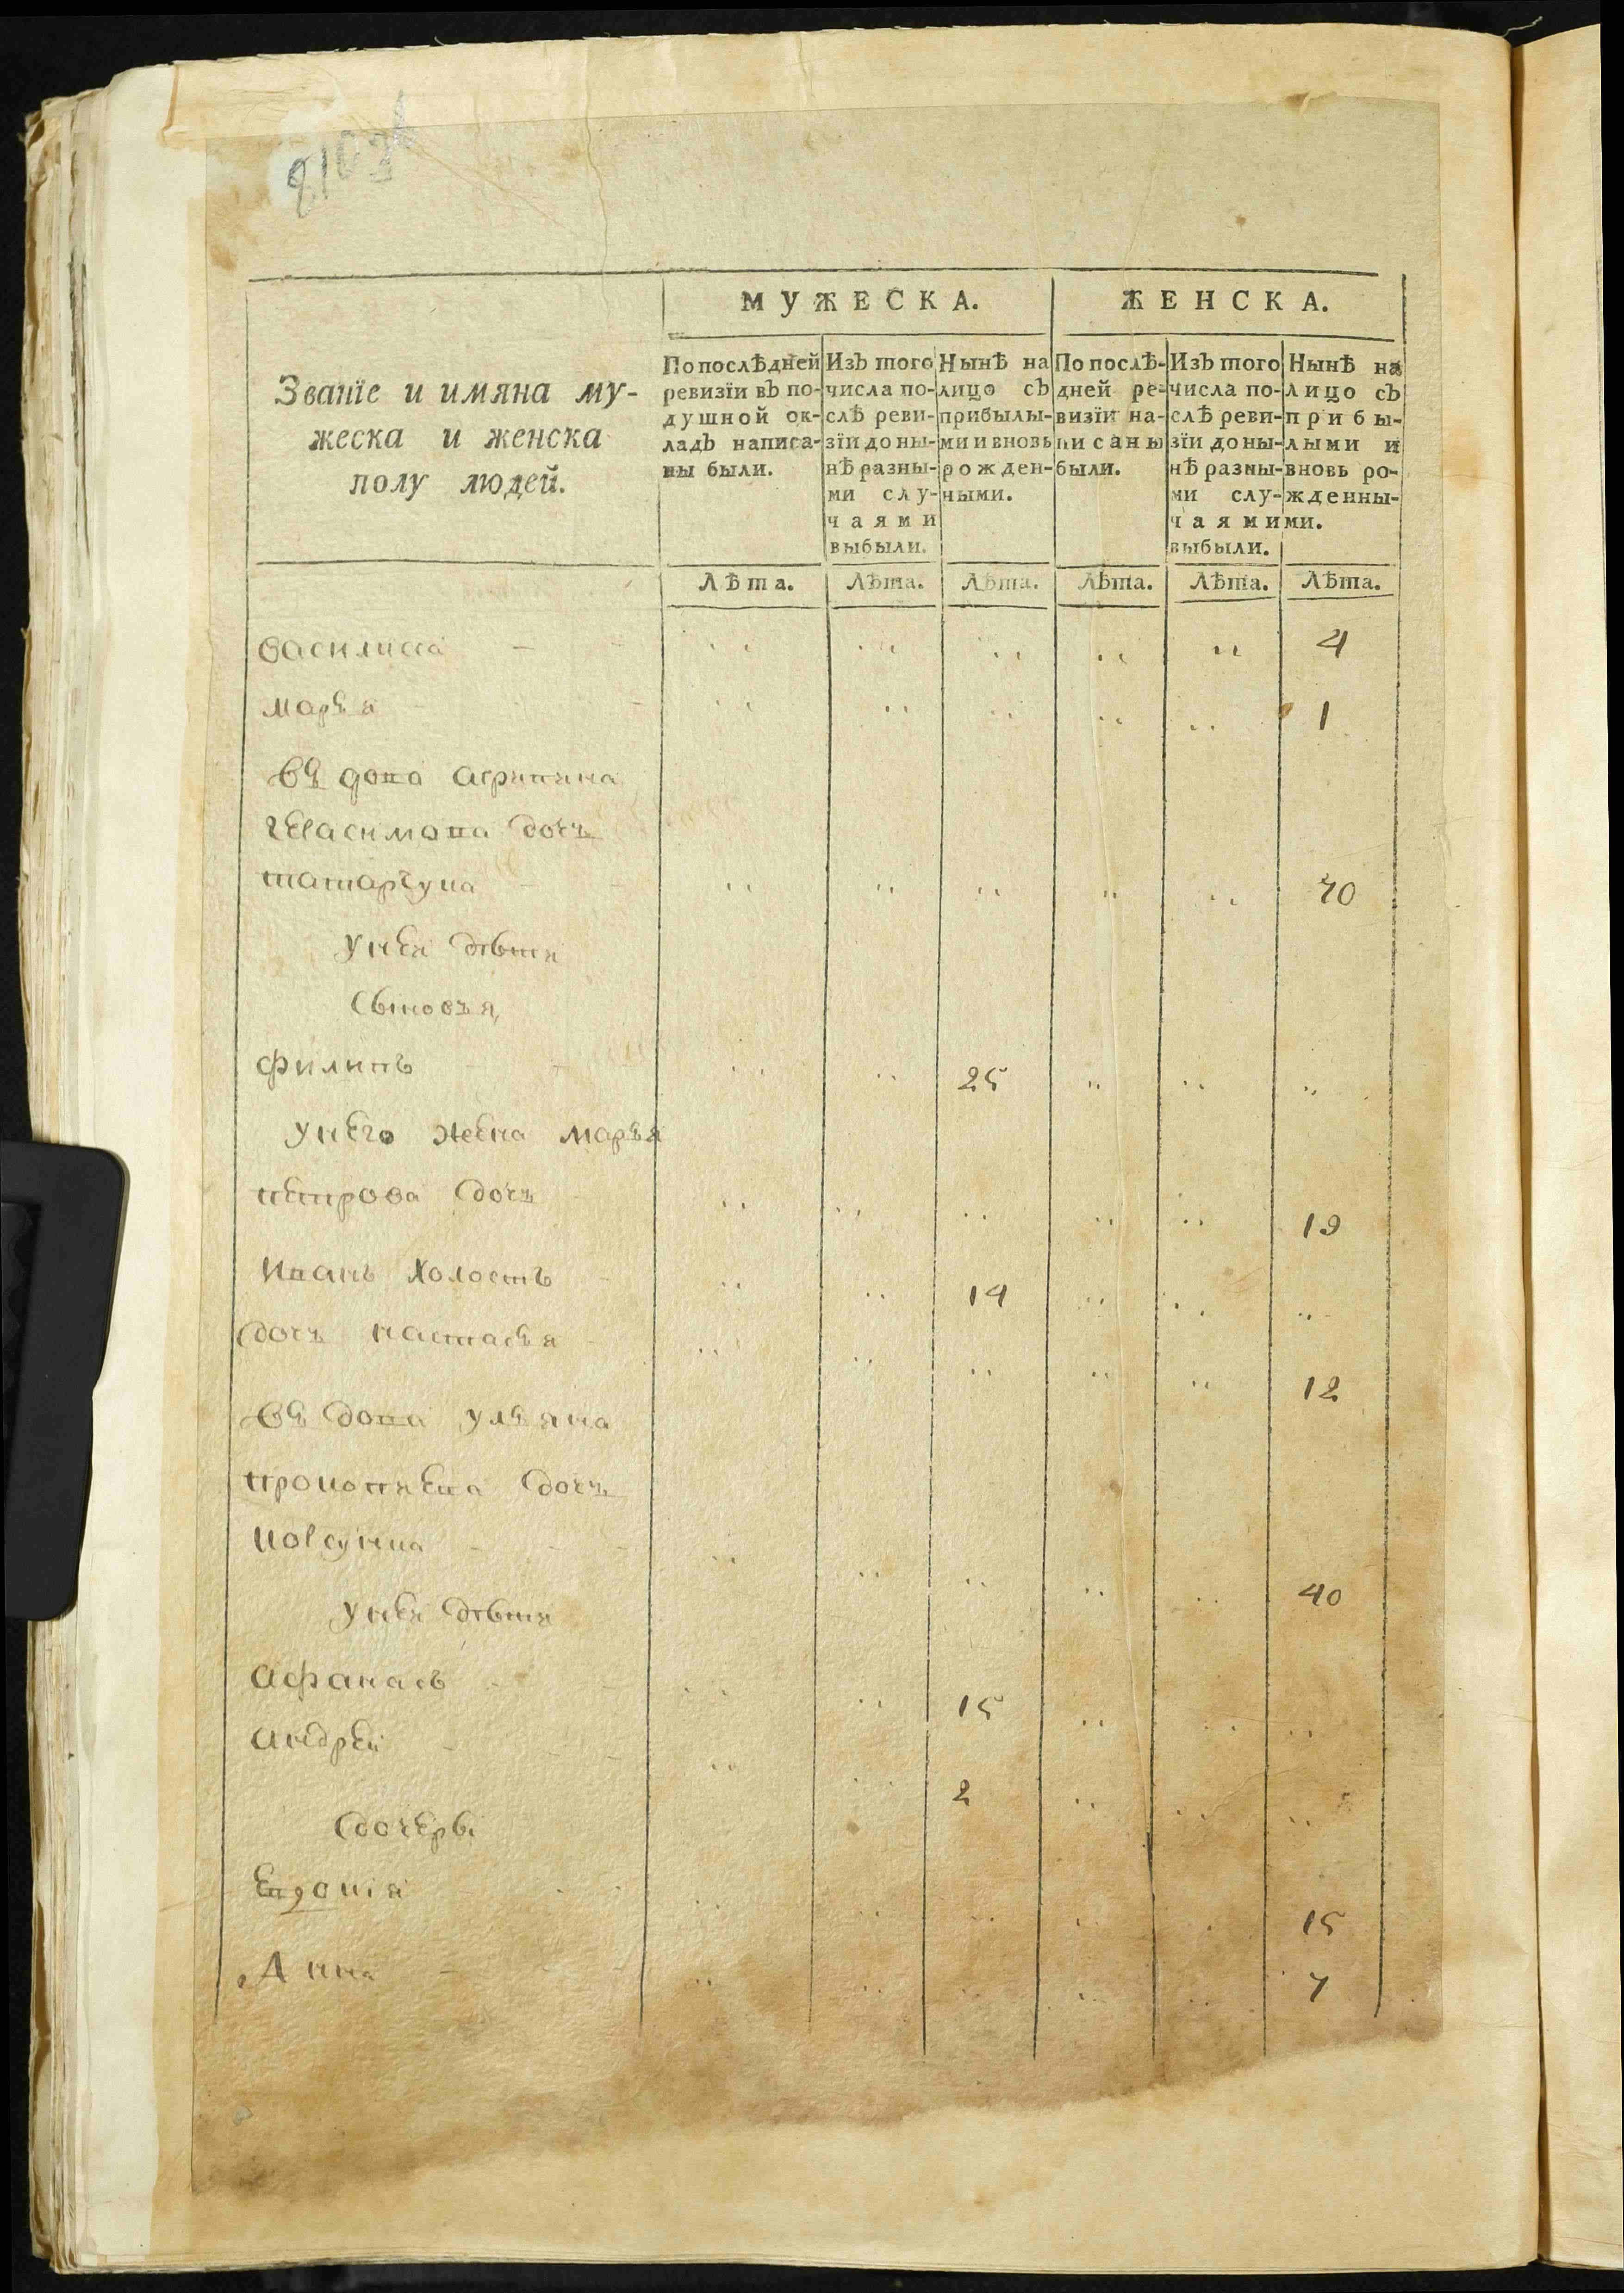 МУЖЕСКА. ЖЕНСКА.
Званїе и имяна му-
жеска и женска
полу людей.
По послѣдней
ревизїи въ по-
душной ок-
ладъ написа-
ны были.
Изъ того
числа по-
слѣ реви-
зїи до ны-
нѣ разны-
ми слу-
чаями
выбыли.
Нынѣ на
лицо съ
прибылы-
ми и вновь
рожден-
ными.
По послѣ-
дней ре-
визїи на-
писаны
были.
Изъ того
числа по-
слѣ реви-
зїи до ны-
нѣ разны-
ми слу-
чаями
выбыли.
Нынѣ на
лицо съ
прибы-
лыми и
вновь ро-
жденны-
ми.
Лѣта. Лѣта. Лѣта. Лѣта. Лѣта. Лѣта.
василиса - - " " " " " 4
марья - - " " " " " 1
вдова агрипина
герасимова дочь
" " " " " 70
у нея дѣти
филипъ - - " " 25 " " "
у него жена марья
петрова дочь " " " " " 19
иванъ холостъ - " " 14 " " "
дочь настасья - " " " " " 12
вдова ульяна
дочь
- - - " " " " " 40
у нея дѣти
афанасъ - - " " 15 " " "
андрей - - - " " 2 " " "
дочери
- - " " " " " 15
Анна - - " " " " " 7